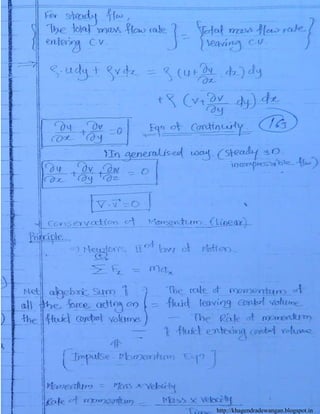 For steady flow,
{ The total mass flow rate entering C.V. } = { Total mass flow rate leaving C.V. }
ρ.udy + ρvdx = ρ(u+∂v/∂x dx)dy
+ρ(v+∂v/∂y dy)dx
∂u/∂x + ∂v/∂y = 0 Eqn of Continuity (16)
In generalised way. (Steady &
∂u/∂x + ∂v/∂y + ∂w/∂z = 0 incompressible flow)
∇.v⃗=0
Conservation of Momentum (Linear)
Principle
⇒ Newton's IInd law of Motion.
Σ Fx = max
Net algebraic Sum of = The rate of momentum of
all the force acting on fluid leaving control volume
the fluid control volume) — The Rate of momentum
of fluid entering control volume
[Impulse Momentum Eqn]
Momentum = Mass x velocity
Rate of momentum = Mass x velocity
Time
http://khagendradewangan.blogspot.in